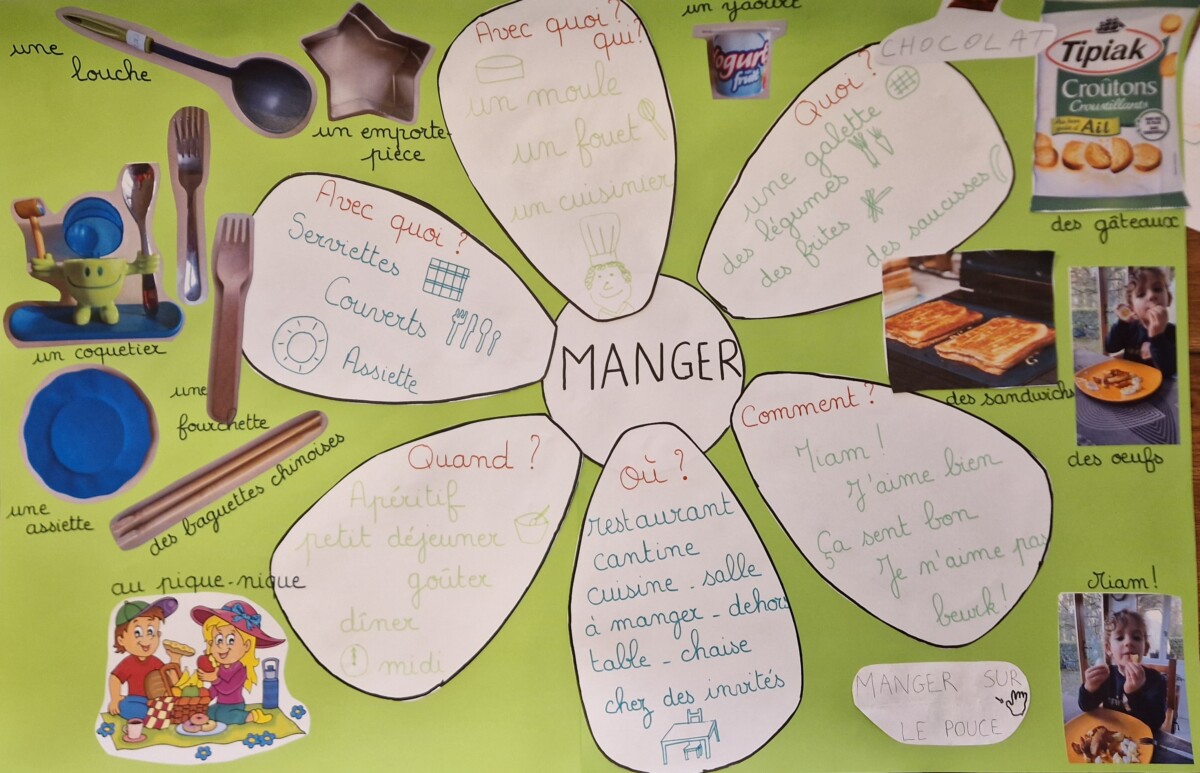 une
louche
un emporte-
pièce
Avec quoi?
qui?
un moule
un fouet
un cuisinier
un yaourt
Yogurt
aux
fruits
CHOCOLAT
Quoi ?
une galette
des légumes
des frites
des saucisses
Tipiak
Croûtons
Croustillants
Ail
des gâteaux
Avec quoi ?
Serviettes
Couverts
Assiette
MANGER
un coquetier
une
fourchette
des baguettes chinoises
une
assiette
des sandwichs
des oeufs
Quand ?
Apéritif
petit déjeuner
goûter
dîner
midi
Où ?
restaurant
cantine
cuisine - salle
à manger - dehors
table - chaise
chez des invités
Comment ?
Miam !
J'aime bien
Ça sent bon
Je n'aime pas
beurk!
au pique-nique
Miam!
MANGER SUR
LE POUCE